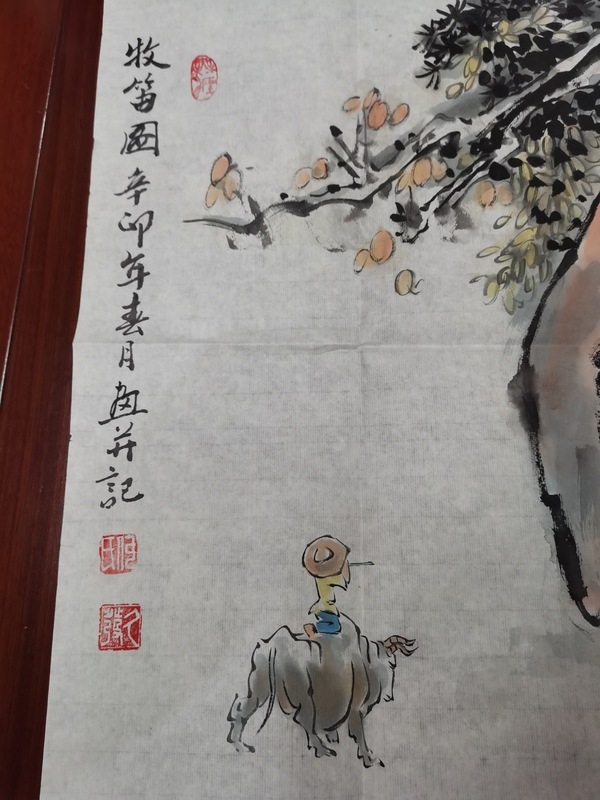 牧笛图辛卯年春月画并記